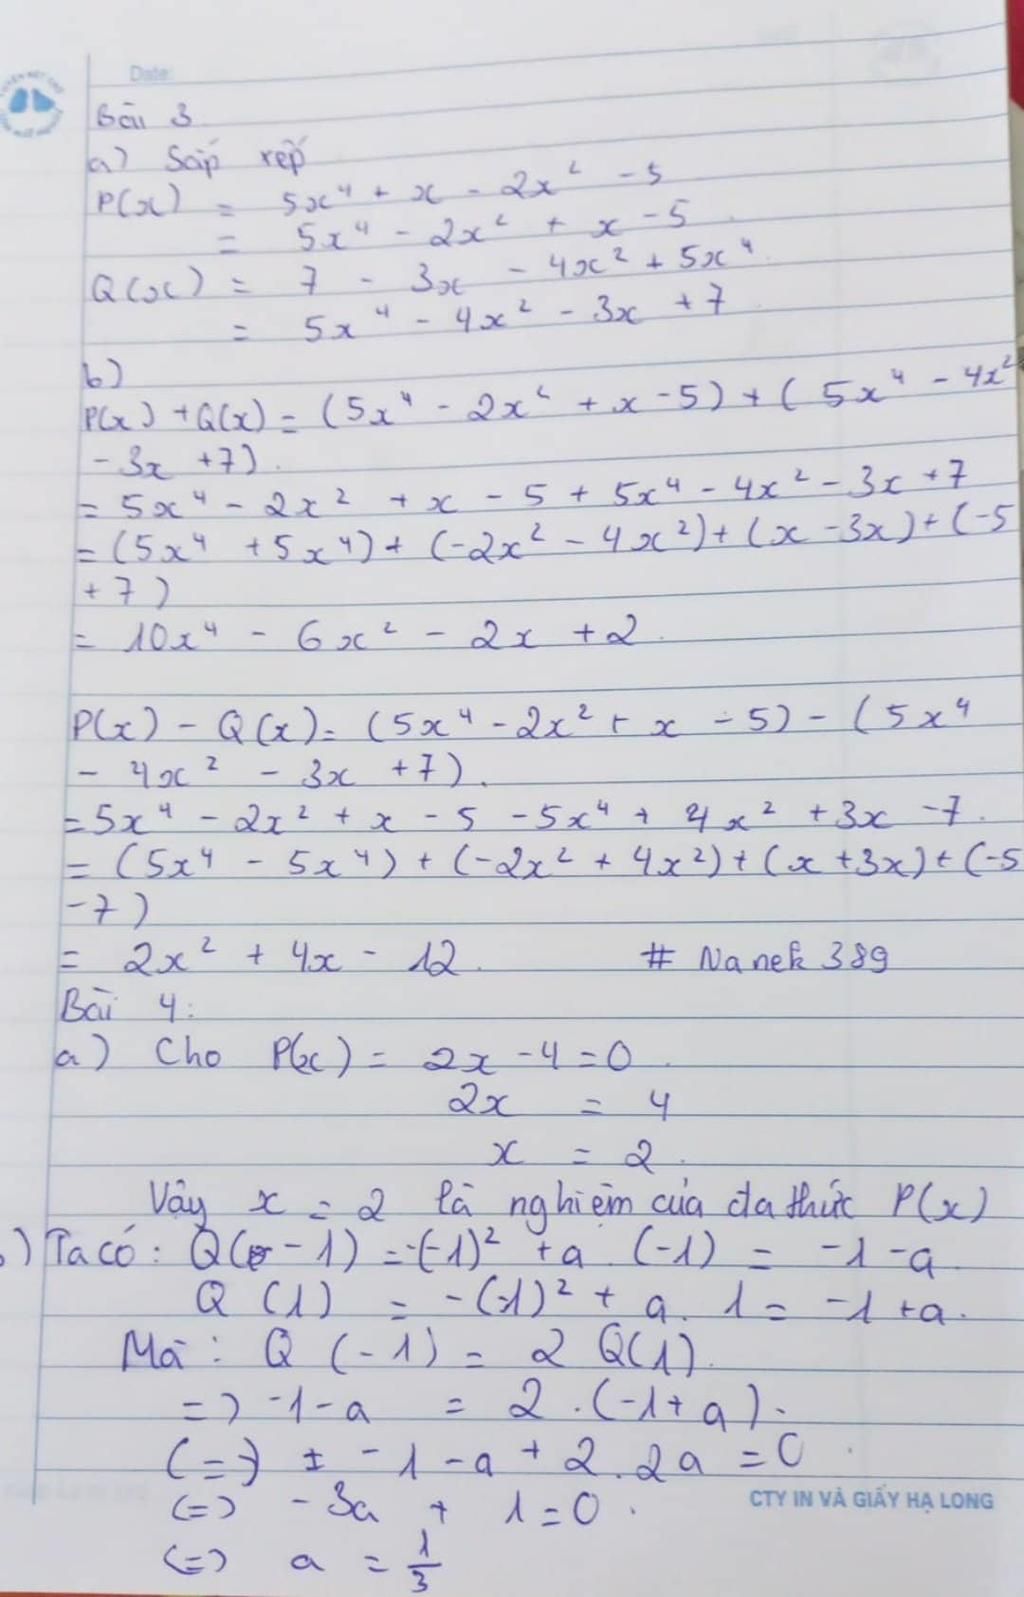 Date:
Bài 3
a) Sắp xếp
P(x) = 5x⁴ + x - 2x² - 5
= 5x⁴ - 2x² + x - 5
Q(x) = 7 - 3x - 4x² + 5x⁴
= 5x⁴ - 4x² - 3x + 7
b)
P(x) + Q(x) = (5x⁴ - 2x² + x - 5) + (5x⁴ - 4x²
- 3x + 7).
= 5x⁴ - 2x² + x - 5 + 5x⁴ - 4x² - 3x + 7
= (5x⁴ + 5x⁴) + (-2x² - 4x²) + (x - 3x) + (-5
+ 7)
= 10x⁴ - 6x² - 2x + 2.
P(x) - Q(x) = (5x⁴ - 2x² + x - 5) - (5x⁴
- 4x² - 3x + 7).
= 5x⁴ - 2x² + x - 5 - 5x⁴ + 4x² + 3x - 7.
= (5x⁴ - 5x⁴) + (-2x² + 4x²) + (x + 3x) + (-5
-7)
= 2x² + 4x - 12. # Nanek 389
Bài 4:
a) Cho P(x) = 2x - 4 = 0.
2x = 4
x = 2.
Vậy x = 2 là nghiệm của đa thức P(x)
b) Ta có: Q(-1) = -(-1)² + a.(-1) = -1 - a
Q(1) = -(1)² + a.1 = -1 + a.
Mà: Q(-1) = 2Q(1).
=> -1 - a = 2.(-1 + a).
(=) -1 - a + 2.2a = 0
(=) -3a + 1 = 0.
(=) a = 1/3
CTY IN VÀ GIẤY HẠ LONG